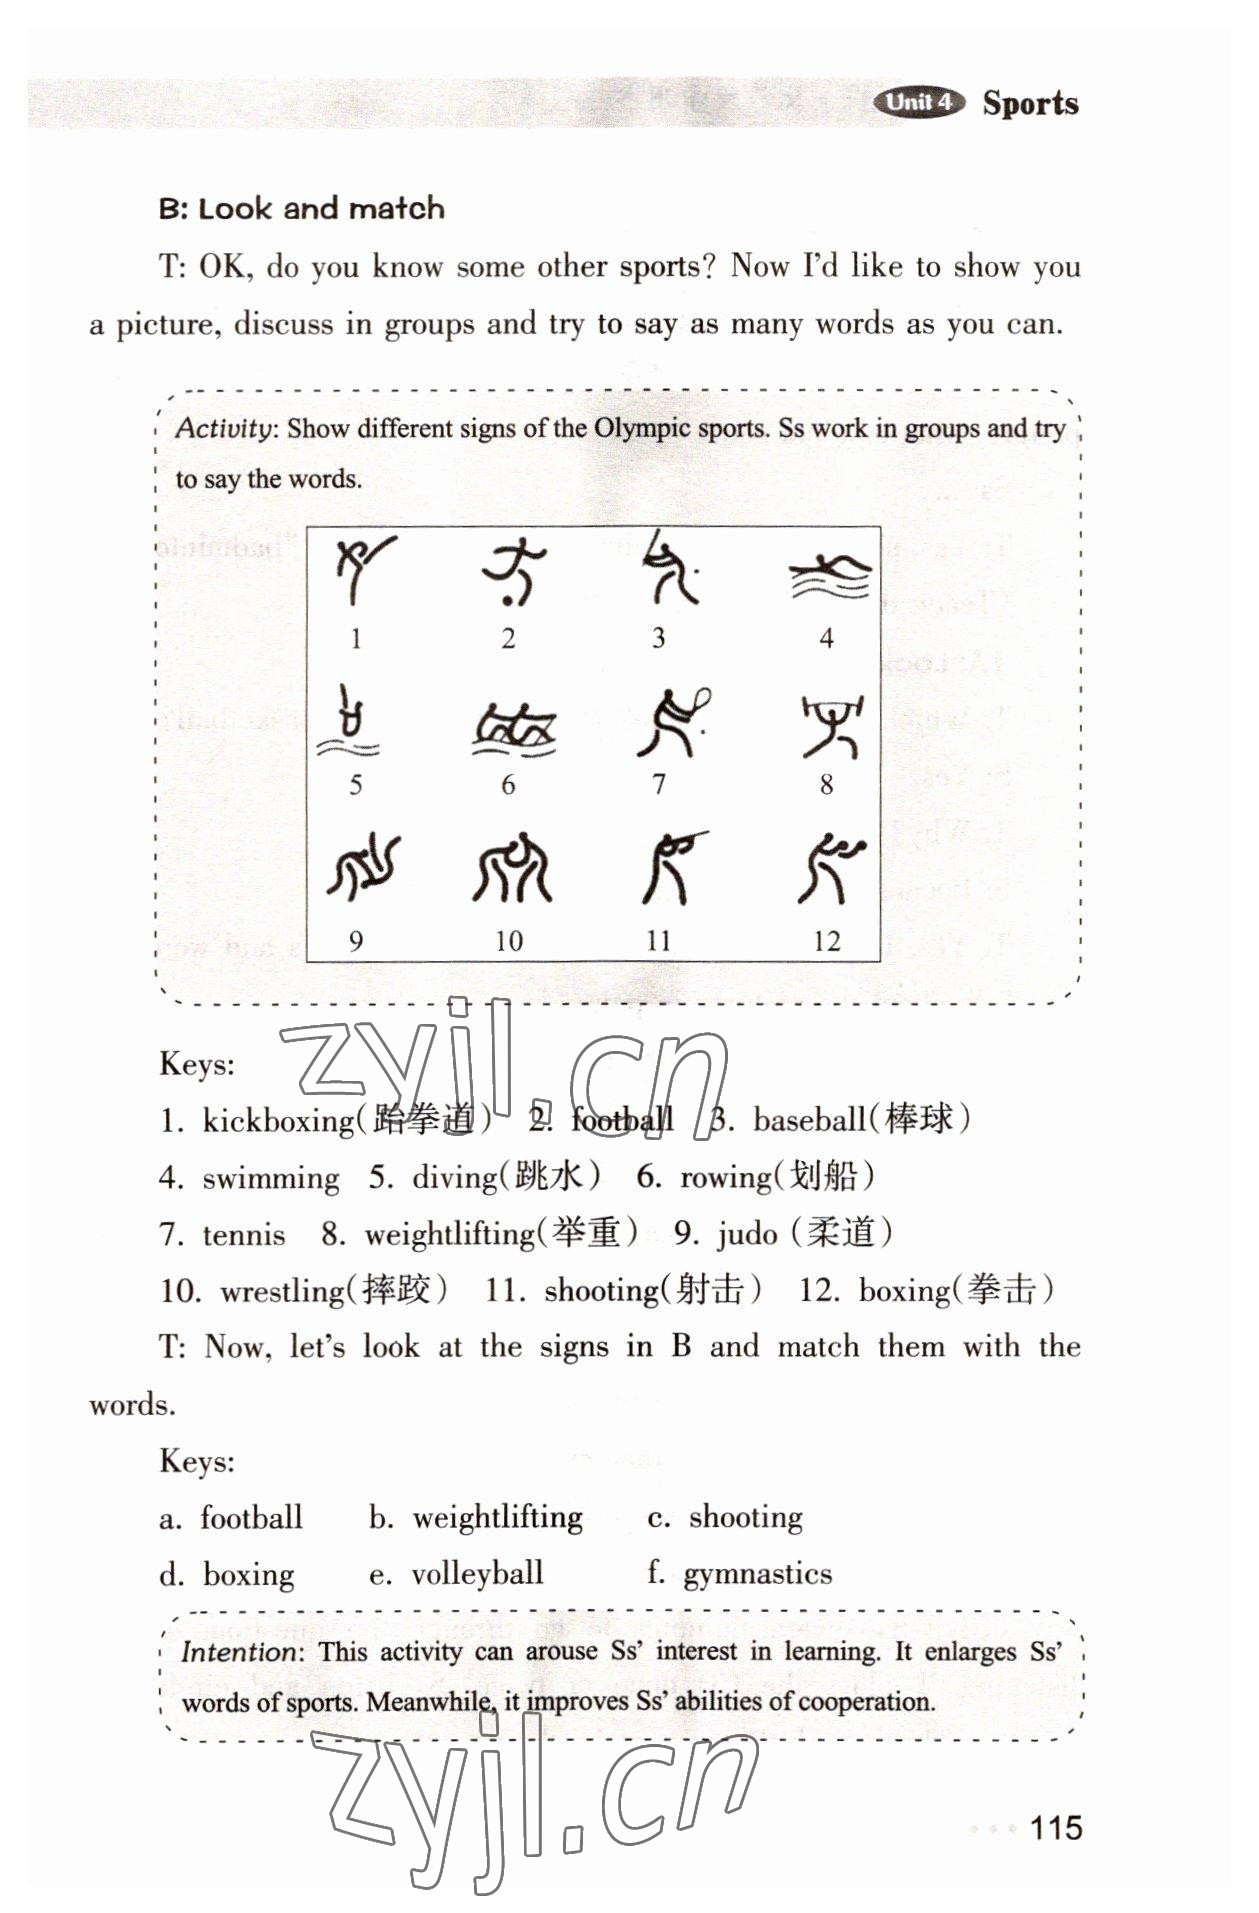 Unit 4 Sports
B: Look and match
T: OK, do you know some other sports? Now I'd like to show you
a picture, discuss in groups and try to say as many words as you can.
Activity: Show different signs of the Olympic sports. Ss work in groups and try
to say the words.
1 2 3 4
5 6 7 8
9 10 11 12
Keys:
1. kickboxing(跆拳道) 2. football 3. baseball(棒球)
4. swimming 5. diving(跳水) 6. rowing(划船)
7. tennis 8. weightlifting(举重) 9. judo (柔道)
10. wrestling(摔跤) 11. shooting(射击) 12. boxing(拳击)
T: Now, let's look at the signs in B and match them with the
words.
Keys:
a. football b. weightlifting c. shooting
d. boxing e. volleyball f. gymnastics
Intention: This activity can arouse Ss' interest in learning. It enlarges Ss'
words of sports. Meanwhile, it improves Ss' abilities of cooperation.
115
zyjl.cn
zyjl.cn